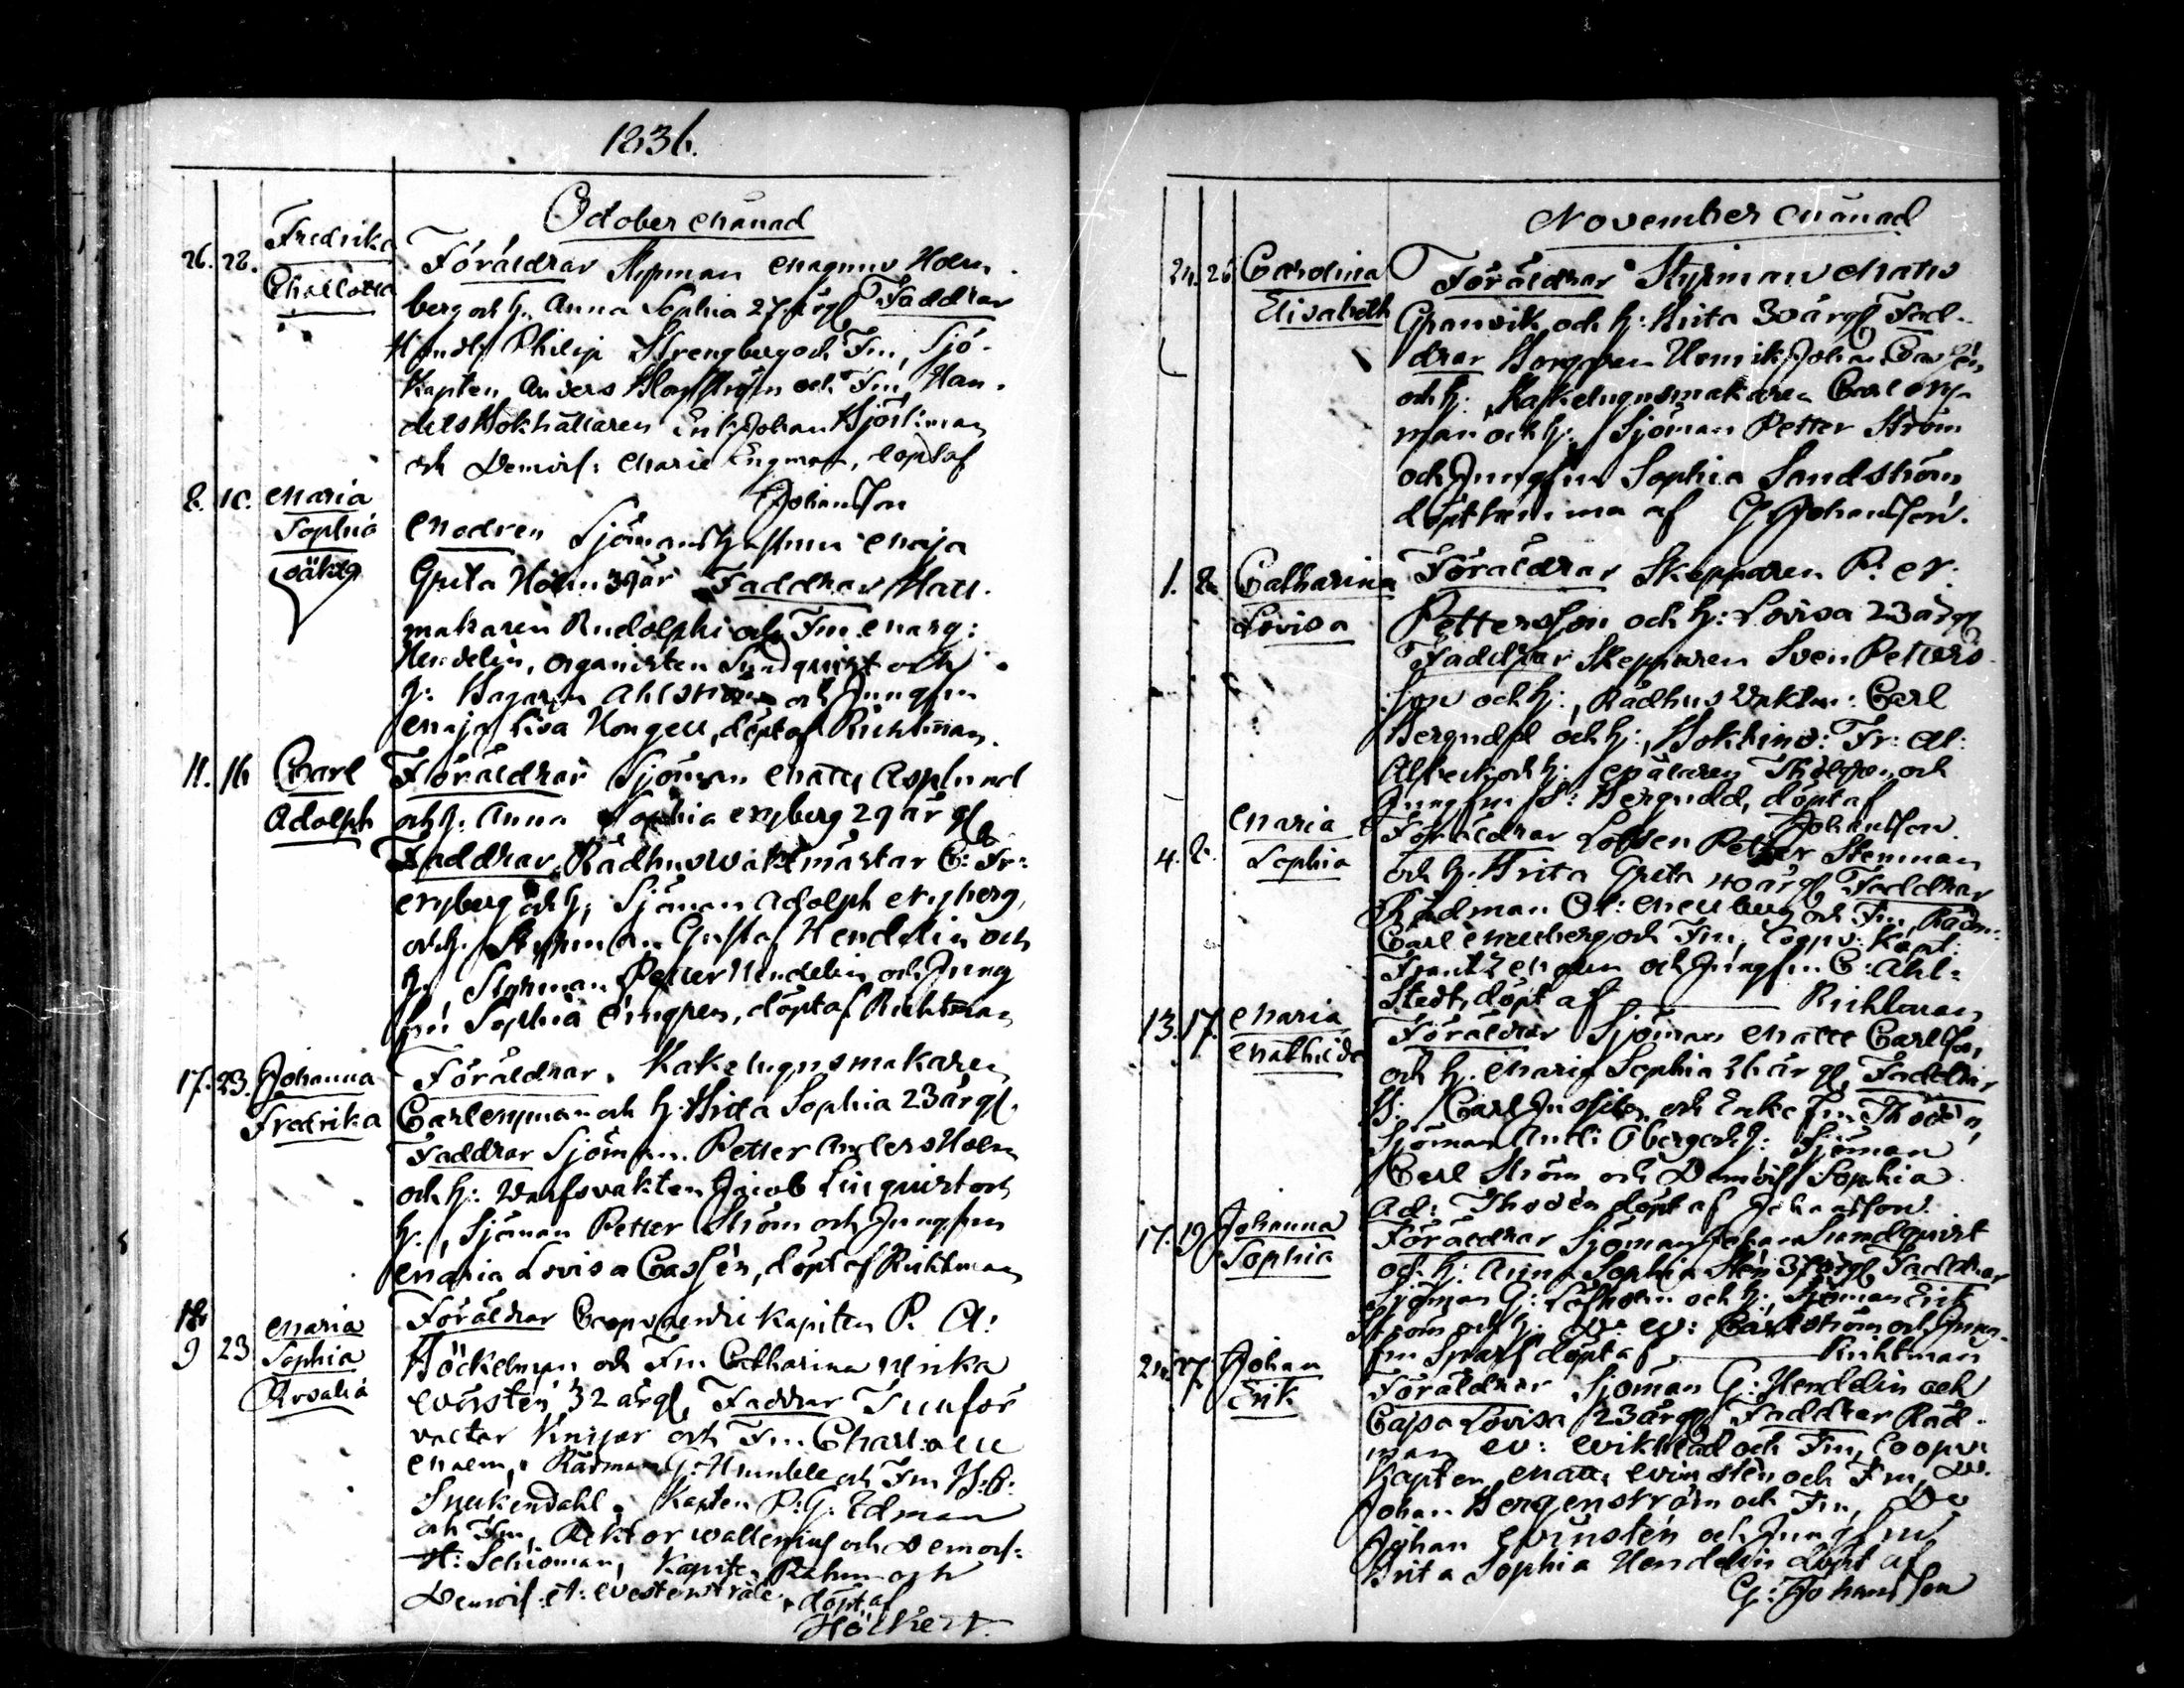 1836.
October Månad
26. 28. Fredrika Charlotta
Föräldrar Styrman Magnus Holm
berg och h. Anna Sophia 27 årg Faddrar
Handl: Philip Strengberg och Fru, Sjö
Kapten Anders och Fru, Han
delsBokhållaren Erik Johan Björkman
och Demois: Maria Engman, döpt af
Johansson
8. 10. Maria Sophia oäkta
Modren Sjömans Maja
Greta Holm 39 år Faddrar Hatt
makaren Rudolphi och Fru Marg:
Hendelin, Organisten Sundquist och
h: Bagaren Ahlström och Jungfru
Maja Lisa Hongell, döpt af Richtman.
11. 16 Carl Adolph
Föräldrar Sjöman Matts Asplund
och h. Anna Sophia Nyberg 29 år gl
Faddrar Rådhuswaktmästar C: Fr:
Nyberg och h; Sjöman Adolph Nyberg,
och h. Styrman Gustaf Hendelin och
h. Styrman Petter Hendelin och Jung
fru Sophia döpt af Richtman
17. 23. Johanna Fredrika
Föräldrar, Kakelugnsmakaren
Carl Nyman och h: Brita Sophia 23 år gl.
Faddrar Sjöman Petter Anders Holm
och h: Warfsvakten Jacob Linquist och
h:, Sjöman Petter Ström och Jungfrun
Maria Lovisa Cassén, döpt af Richtman
18
9 23 Maria Sophia Rosalia
Föräldrar Coopvaerdie Kapiten P. A:
Böckelman och Fru Catharina Ulrika
Winstén 32 år gl, Faddrar Tullför
valtar och Fru Charl:
Malm, Rådman G: Humble och Fru B: C:
Snickendahl, Kapten P: G: Edman
och Fru, Rektor Wallenius och Demois:
H: Schoman, Kapten Rahm och
Demois: A: Westerstråle, döpt af
Hölkert.
November Månad
24. 26 Carolina Elisabeth
Föräldrar Styrman Mats
Granvik och h: Brita 30 år gl Fad
drar Borgaren Henrik Johan Cassén
och h:, Kakelugnsmakaren Carl Ny
man och h: Sjöman Petter Ström
och Jungfrun Sophia Sandström
döpt hemma af G: Johansson.
1. 2 Catharina Lovisa
Föräldrar Skepparen P. N:
Pettersson och h: Lovisa 23 år gl
Faddrar Skepparen Sven Petters
son och h:, Rådhus Vaktm: Carl
Bergudd och h:, Bokbind: Fr: Al:
och h: Målaren och
Jungfru S: Bergudd, döpt af
Johansson.
4. 8. Maria Sophia
Föräldrar Lotsen Petter Stenman
och h: Brita Greta 40 år gl Faddrar
Rådman Ol: Melberg och Fru, Rådm:
Carl Melberg och Fru, Coopv: Kapt
Frantz och Jungfru C: Ahl
stedt, döpt af Richtman
13. 17. Maria Mathilda
Föräldrar Sjöman Matts Carlsson
och h. Maria Sophia 26 år gl, Faddrar
B: Carl och Enke Fru Thodén,
Sjöman Antti Öberg och h: Sjöman
Carl Ström och Demois: Sophia
Ad: Thodén döpt af Johansson.
17. 19 Johanna Sophia
Föräldrar Sjöman Johan Sundquist
och h: Anna Sophia Stén 37 år gl Faddrar
Sjöman G: Löfholm och h:, Sjöman Erik
Ström och h: Carlström och Jung
fru döpt af Richtman
24. 27. Johan Erik
Föräldrar Sjöman G: Hendelin och
Cajsa Lovisa 23 år gl Faddrar Råd
man Wikblad och Fru, Coopv:
Kapten Matts Winstén och Fru, D:o
Johan Bergenström och Fru, D:o
Johan Winstén och Jungfru
Brita Sophia Hendelin döpt af
G: Johansson